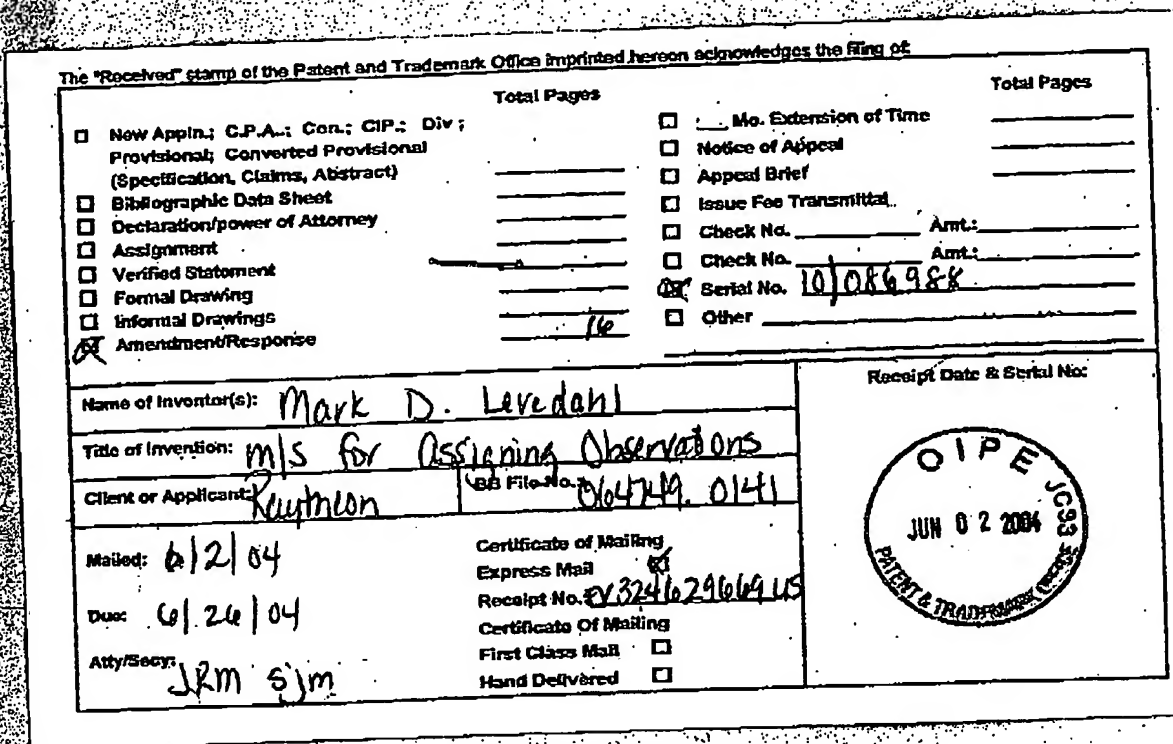 The "Received" stamp of the Patent and Trademark Office imprinted hereon acknowledges the filing of:
Total Pages
Total Pages
New Appln.; C.P.A.; Con.; CIP.; Div;
Provisional; Converted Provisional
(Specification, Claims, Abstract)
Bibliographic Data Sheet
Declaration/power of Attorney
Assignment
Verified Statement
Formal Drawing
Informal Drawings
Amendment/Response 16
Mo. Extension of Time
Notice of Appeal
Appeal Brief
Issue Fee Transmittal
Check No. Amt.:
Check No. Amt.:
Serial No. 10/086988
Other
Name of Inventor(s): Mark D. Levedahl
Title of Invention: M/S for Assigning Observations
Client or Applicant: Raytheon
BB File No.: 064749.0141
Mailed: 6/2/04
Due: 6/26/04
Atty/Secy: JRM sjm
Certificate of Mailing
Express Mail
Receipt No. EV324629669US
Certificate Of Mailing
First Class Mail
Hand Delivered
Receipt Date & Serial No:
OIPE JC93
JUN 02 2004
PATENT & TRADEMARK OFFICE